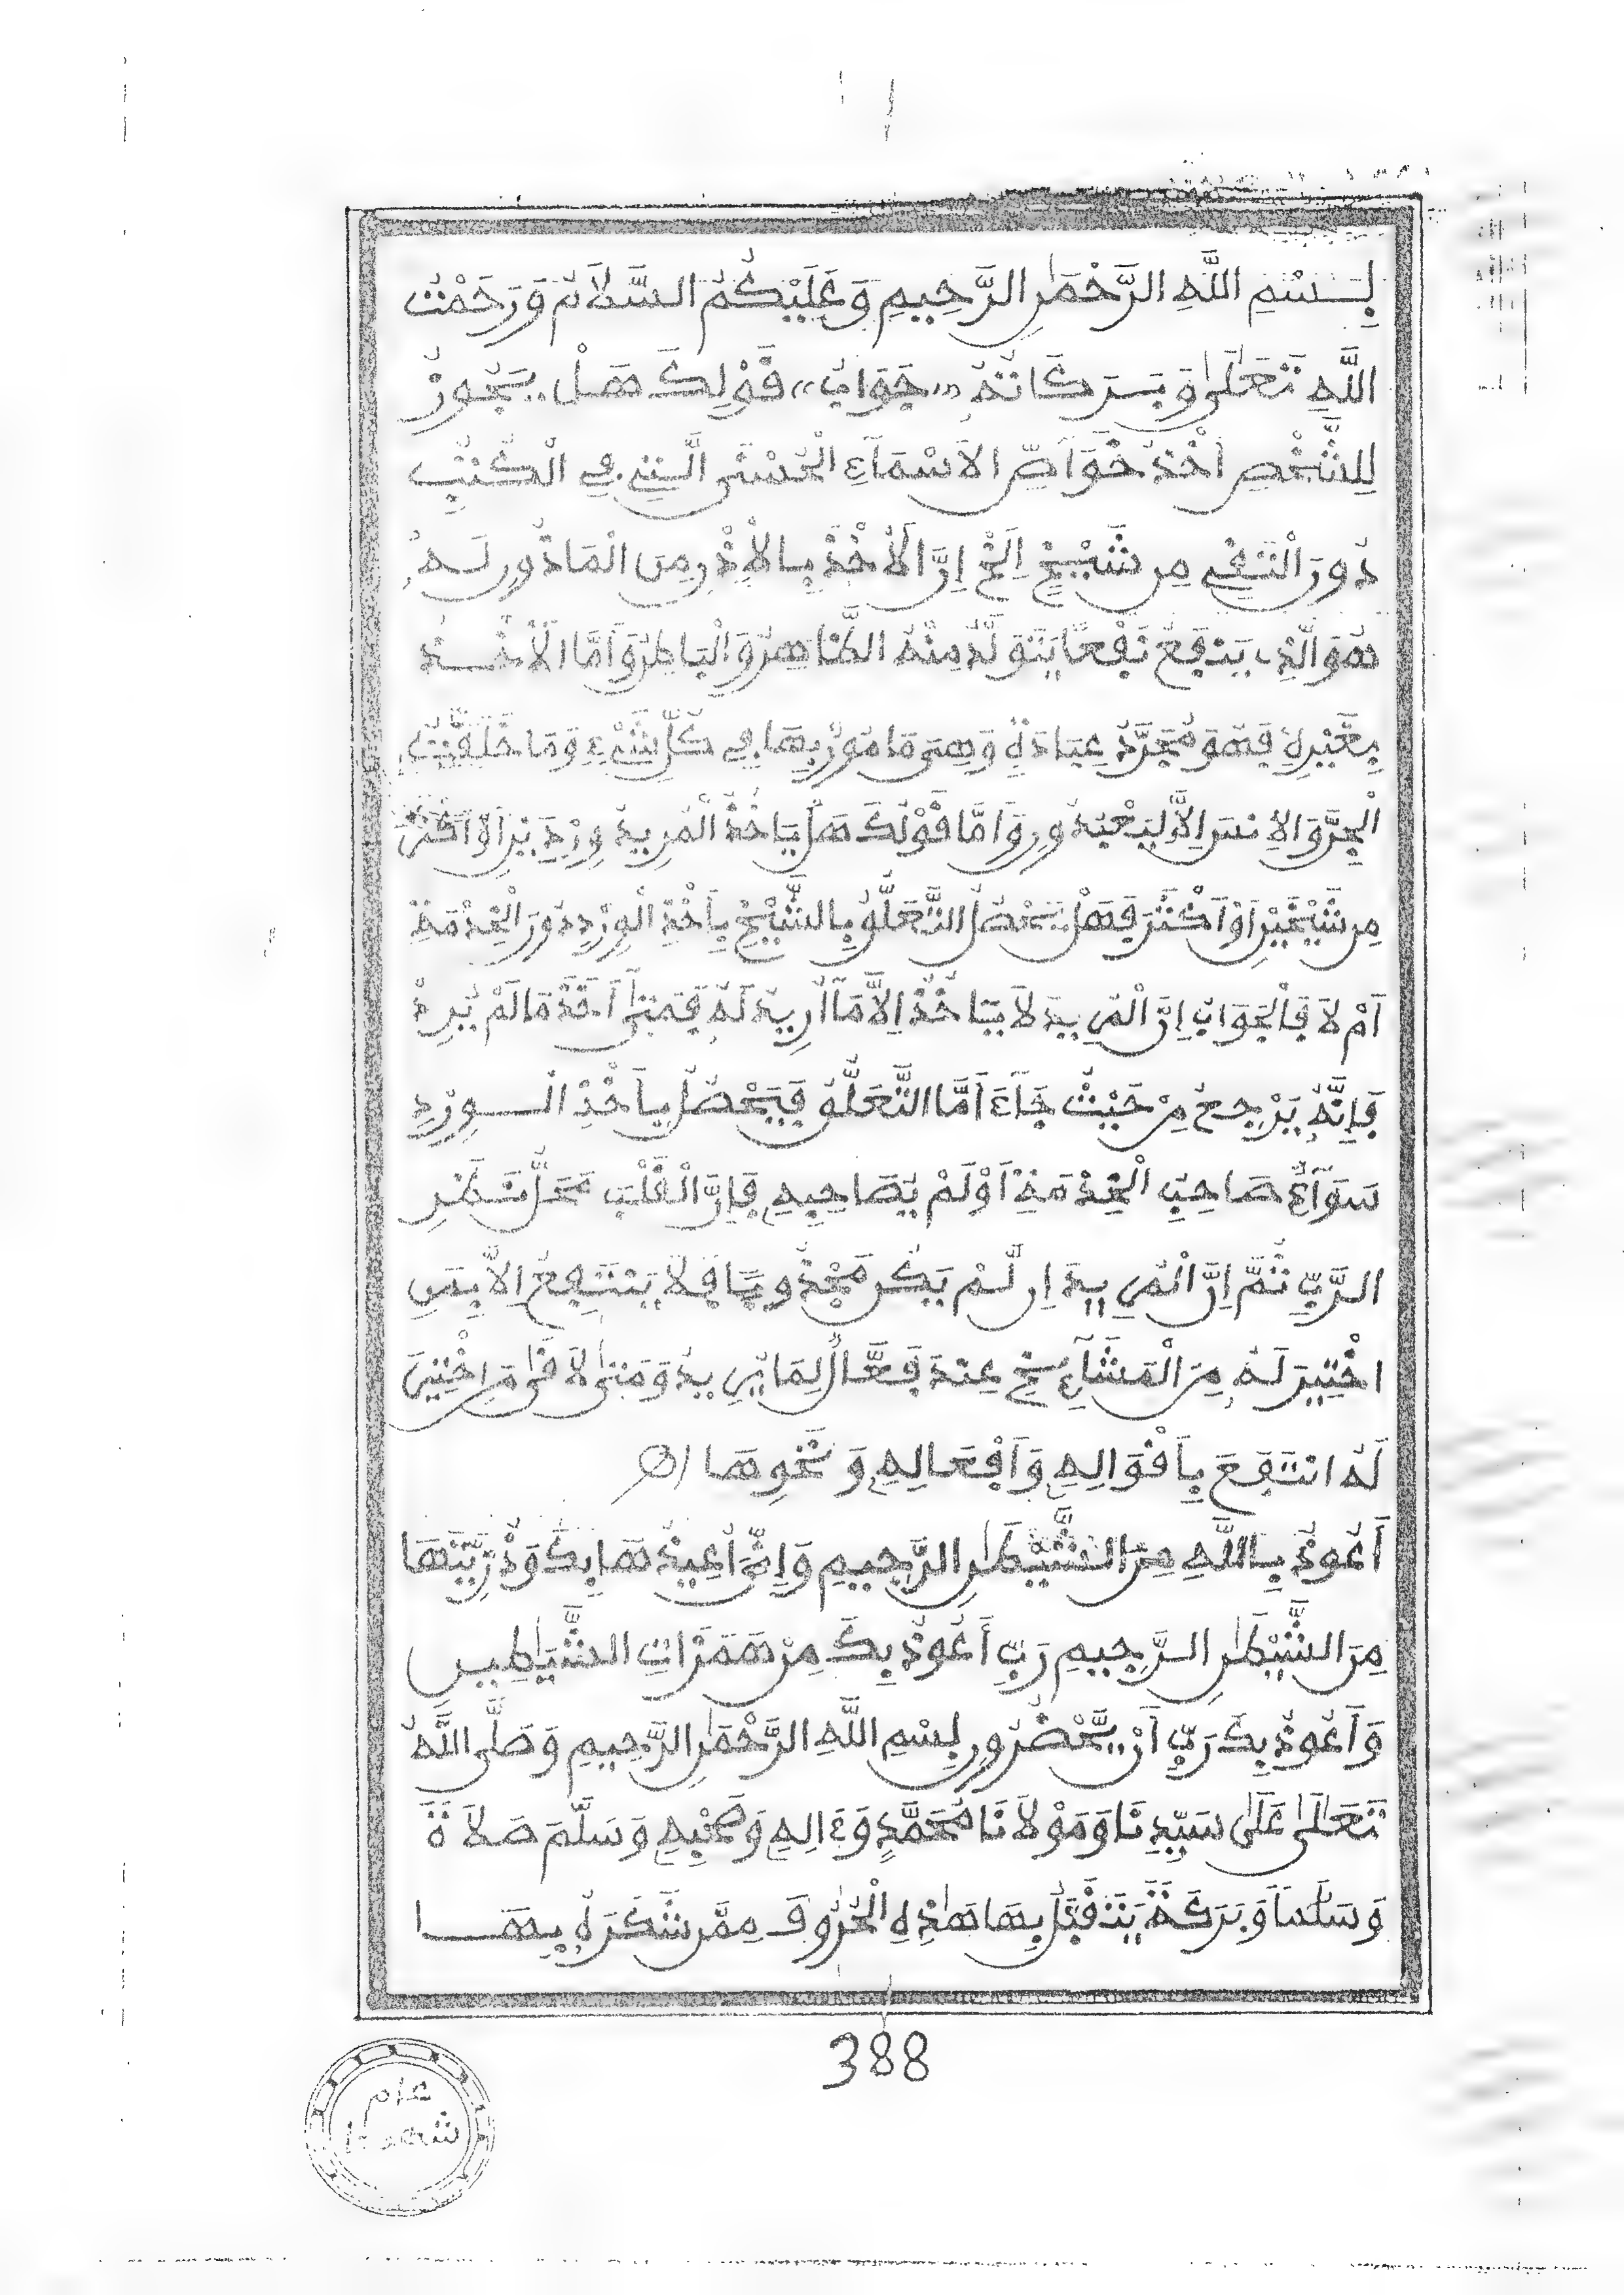 بِسْمِ اللَّهِ الرَّحْمَٰنِ الرَّحِيمِ وَعَلَيْكُمُ السَّلَامُ وَرَحْمَتُ
اللَّهِ تَعَالَىٰ وَبَرَكَاتُهُ «جَوَابُ» قَوْلِكَ هَلْ يَجُوزُ
لِلشَّخْصِ أَخْذُ خَوَاصِّ الأَسْمَآءِ الْحُسْنَى الَّتِي فِي الْكُتُبِ
دُونَ التَّلَقِّي مِن شَيْخٍ إِلَخْ إِنَّ الأَخْذَ بِالإِذْنِ مِنَ الْمَاذُونِ لَهُ
هُوَ الَّذِي يَنفَعُ نَفْعًا يَتَوَلَّدُ مِنْهُ الظَّاهِرُ وَالْبَاطِنُ وَأَمَّا الأَخْذُ
بِغَيْرِهِ فَهُوَ مُجَرَّدُ عِبَادَةٍ وَهِىَ مَامُورٌ بِهَا فِي كُلِّ شَيْءٍ وَمَا خَلَقْتُ
الْجِنَّ وَالإِنسَ إِلاَّ لِيَعْبُدُونِ وَأَمَّا قَوْلُكَ هَلْ يَاخُذُ الْمُرِيدُ وِرْدَيْنِ أَوْ أَكْثَرَ
مِن شَيْخَيْنِ أَوْ أَكْثَرَ فَهَلْ يَحْصُلُ التَّعَلُّقُ بِالشَّيْخِ بِأَخْذِ الْوِرْدِ دُونَ الْخِدْمَةِ
أَمْ لاَ فَالْجَوَابُ إِنَّ الْمُرِيدَ لاَ يَاخُذُ إِلاَّ مَآ أُرِيدَ لَهُ فَمَتَىٰ أَخَذَ مَا لَمْ يُرِدْ
فَإِنَّهُ يَرْجِعُ مِنْ حَيْثُ جَآءَ أَمَّا التَّعَلُّقُ فَيَحْصُلُ بِأَخْذِ الْوِرْدِ
سَوَآءٌ صَاحِبُ الْخِدْمَةِ أَوْ لَمْ يُصَاحِبْهِ فَإِنَّ الْقَلْبَ مَحَلُّ نَظَرِ
الرَّبِّ ثُمَّ إِنَّ الْمُرِيدَ إِن لَّمْ يَكُن مَّجْذُوبًا فَلاَ يَنْتَفِعُ إِلاَّ بِمَنِ
اخْتِيرَ لَهُ مِنَ الْمَشَآئِخِ عِندَ فَعَّالٌ لِمَا يُرِيدُ وَمَتَىٰ لاَقَىٰ مَنِ اخْتِيرَ
لَهُ انتَفَعَ بِأَقْوَالِهِ وَأَفْعَالِهِ وَنَحْوِهَا
أَعُوذُ بِاللَّهِ مِنَ الشَّيْطَٰنِ الرَّجِيمِ وَإِنِّيَ أُعِيذُهَا بِكَ وَذُرِّيَّتَهَا
مِنَ الشَّيْطَٰنِ الرَّجِيمِ رَبِّ أَعُوذُ بِكَ مِنْ هَمَزَاتِ الشَّيَٰطِينِ
وَأَعُوذُ بِكَ رَبِّ أَنْ يَّحْضُرُونِ بِسْمِ اللَّهِ الرَّحْمَٰنِ الرَّحِيمِ وَصَلَّى اللَّهُ
تَعَالَىٰ عَلَىٰ سَيِّدِنَا وَمَوْلاَنَا مُحَمَّدٍ وَءَالِهِ وَصَحْبِهِ وَسَلَّمَ صَلاَةً
وَسَلَٰمًا وَبَرَكَةً يَتَقَبَّلُ بِهَا هَٰذِهِ الْحُرُوفَ مِمَّن شَكَرَهُ بِهَا
388
عام